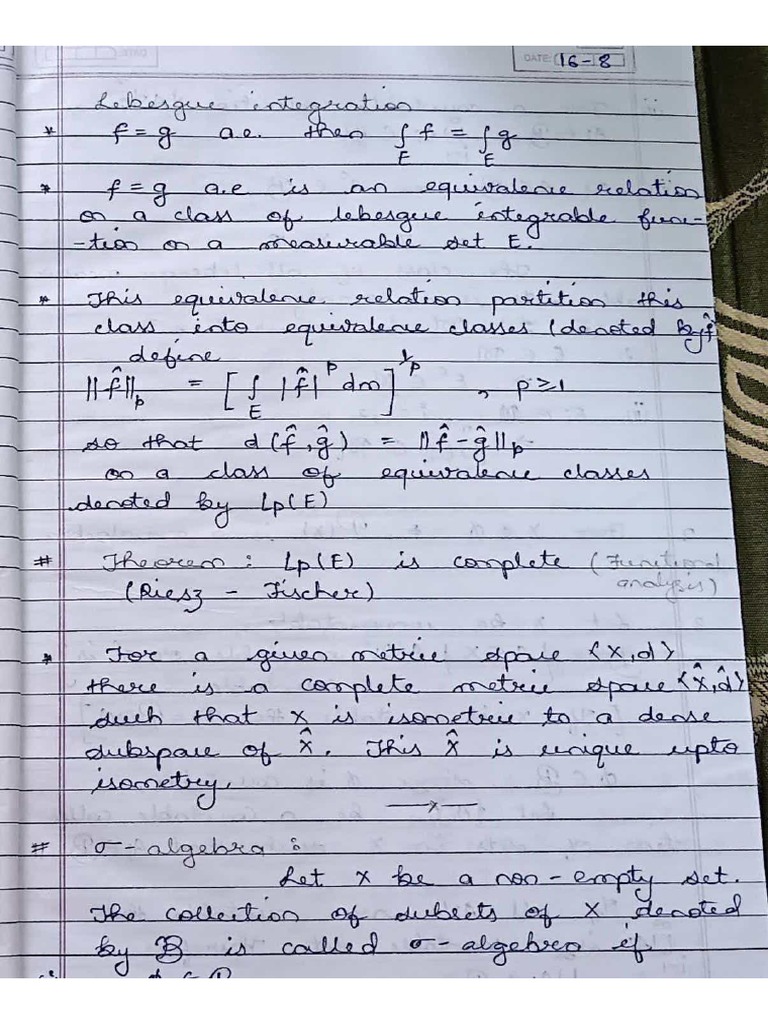 DATE: 16-8
Lebesgue integration
* f = g a.e. then ∫_E f = ∫_E g
* f = g a.e is an equivalence relation
on a class of lebesgue integrable func-
-tion on a measurable set E.
* This equivalence relation partition this
class into equivalence classes (denoted by f̂
define
||f̂||_p = [∫_E |f̂|^p dm]^{1/p} , p ≥ 1
so that d(f̂, ĝ) = ||f̂ - ĝ||_p
on a class of equivalence classes
denoted by Lp(E)
# Theorem : Lp(E) is complete (Functional
(Riesz - Fischer) analysis)
* For a given metric space <X, d>
there is a complete metric space <X̂, d̂>
such that X is isometric to a dense
subspace of X̂. This X̂ is unique upto
isometry.
—x—
# σ-algebra :
Let X be a non-empty set.
The collection of subsets of X denoted
by B is called σ-algebra if